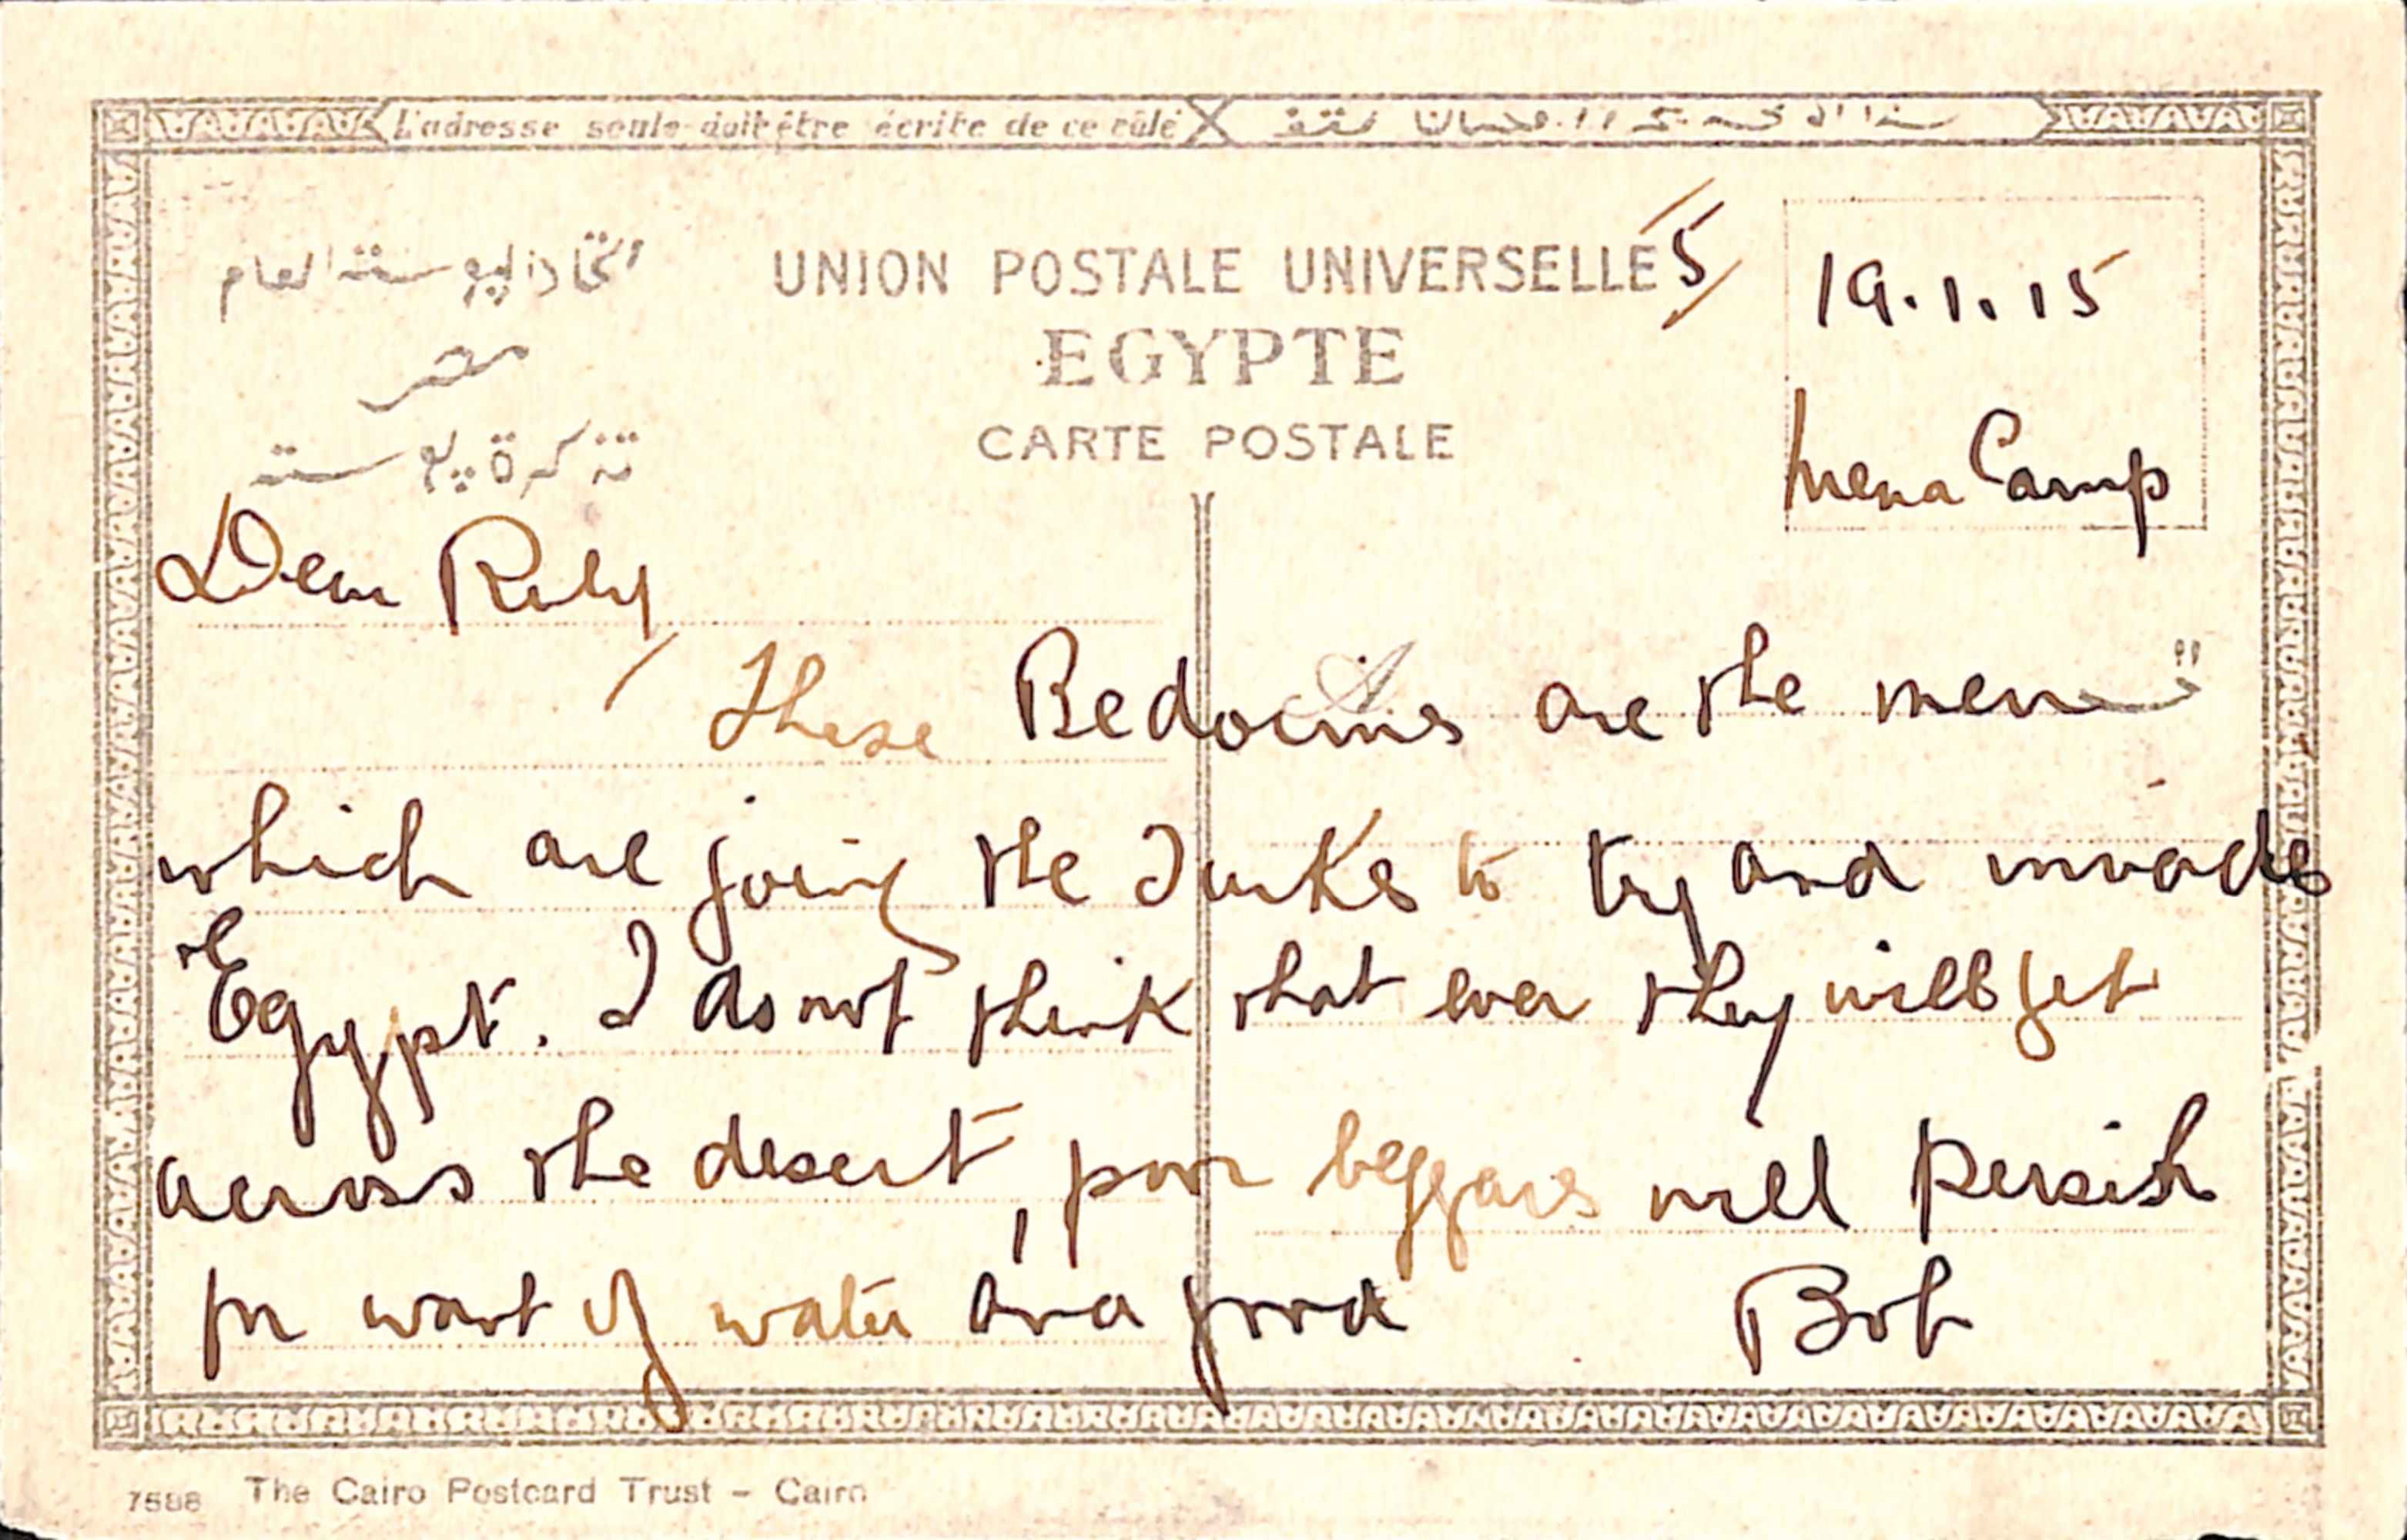 L'adresse seule doit être écrite de ce côté
اتحاد البوستة العام
مصر
تذكرة بوستة
UNION POSTALE UNIVERSELLE
EGYPTE
CARTE POSTALE
5
19.1.15
Mena Camp
Dear Ruby
These Bedouins are the men
which are joing the Turks to try and invade
Egypt. I do not think that ever they will get
across the desert, poor beggars will perish
for want of water and food
Bob
7588 The Cairo Postcard Trust - Cairo